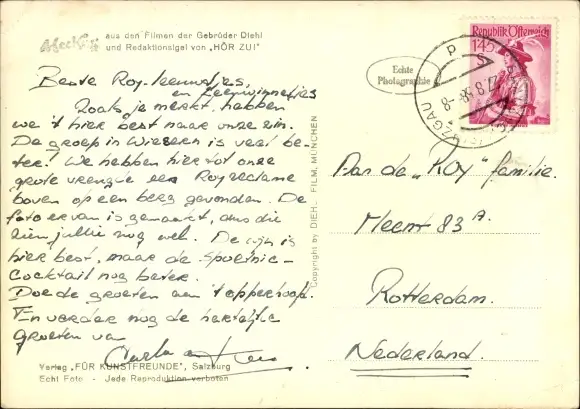 aus den Filmen der Gebrüder Diehl
und Redaktionsigel von „HÖR ZU!"
Beste Roy-leeuwtjes,
en leeuwinnetjes
Zoals je merkt, hebben
we 't hier best naar onze zin.
De groep in Wiesern is veel be-
ter! We hebben hier tot onze
grote vreugde een Royreclame
boven op een berg gevonden. De
foto ervan is gemaakt, dus die
zien jullie nog wel. De wijn is
hier best, maar de Spoetnic-
Cocktail nog beter.
Doe de groeten aan 't opperhoofd.
En verder nog de hartelijke
groeten van
Verlag „FÜR KUNSTFREUNDE", Salzburg
Echt Foto - Jede Reproduktion verboten
Copyright by DIEHL FILM, MÜNCHEN
Echte
Photographie
Republik Österreich
1.45
S
Aan de „ROY" familie.
Meent 83 A.
Rotterdam.
Nederland.